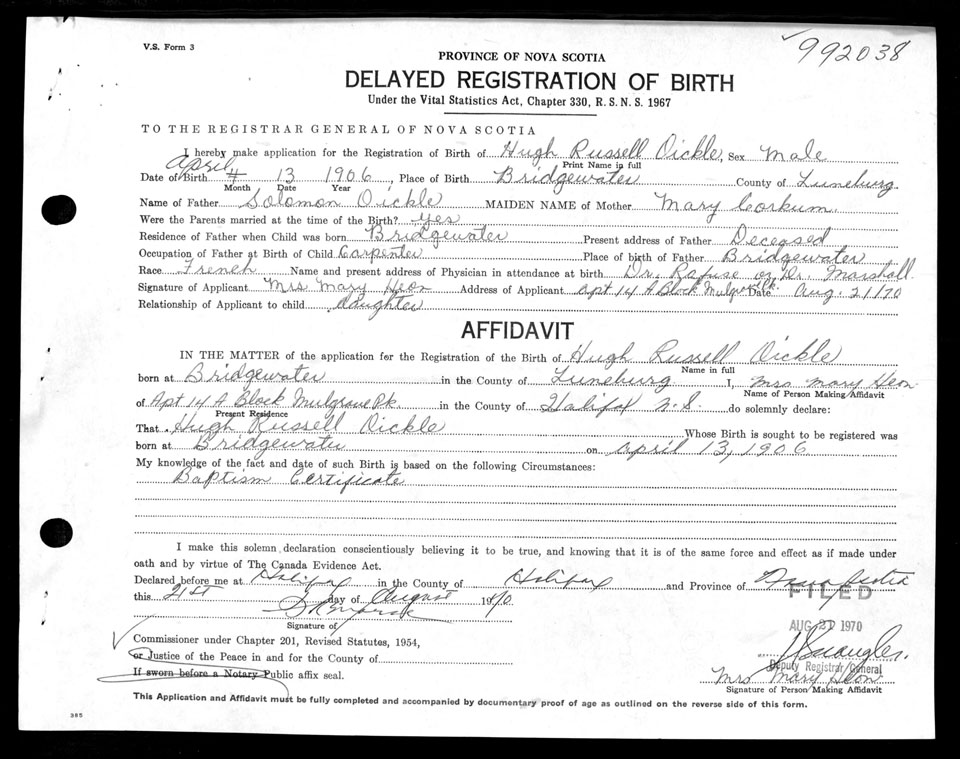 V.S. Form 3
992038
PROVINCE OF NOVA SCOTIA
DELAYED REGISTRATION OF BIRTH
Under the Vital Statistics Act, Chapter 330, R. S. N. S. 1967
TO THE REGISTRAR GENERAL OF NOVA SCOTIA
I hereby make application for the Registration of Birth of Hugh Russell Oickle, Sex Male
Print Name in full
April
Date of Birth 4 13 1906, Place of Birth Bridgewater County of Lunenburg
Month Date Year
Name of Father Solomon Oickle MAIDEN NAME of Mother Mary Corkum
Were the Parents married at the time of the Birth? yes
Residence of Father when Child was born Bridgewater Present address of Father Deceased
Occupation of Father at Birth of Child Carpenter Place of birth of Father Bridgewater
Race French Name and present address of Physician in attendance at birth Dr. Rafuse or Dr. Marshall
Signature of Applicant Mrs Mary Heon Address of Applicant Apt 14 A Block Mulgrave Pk. Date Aug. 21/70
Relationship of Applicant to child daughter
AFFIDAVIT
IN THE MATTER of the application for the Registration of the Birth of Hugh Russell Oickle
Name in full
born at Bridgewater in the County of Lunenburg I, Mrs Mary Heon
Name of Person Making Affidavit
of Apt 14 A Block Mulgrave Pk. in the County of Halifax N.S. do solemnly declare:
Present Residence
That Hugh Russell Oickle Whose Birth is sought to be registered was
born at Bridgewater on April 13, 1906
My knowledge of the fact and date of such Birth is based on the following Circumstances:
Baptism Certificate
I make this solemn declaration conscientiously believing it to be true, and knowing that it is of the same force and effect as if made under
oath and by virtue of The Canada Evidence Act.
Declared before me at Halifax in the County of Halifax and Province of Nova Scotia
this 21st day of August 1970
FILED
AUG 21 1970
Signature of
Commissioner under Chapter 201, Revised Statutes, 1954,
or Justice of the Peace in and for the County of
Deputy Registrar General
If sworn before a Notary Public affix seal.
Mrs Mary Heon
Signature of Person Making Affidavit
This Application and Affidavit must be fully completed and accompanied by documentary proof of age as outlined on the reverse side of this form.
385